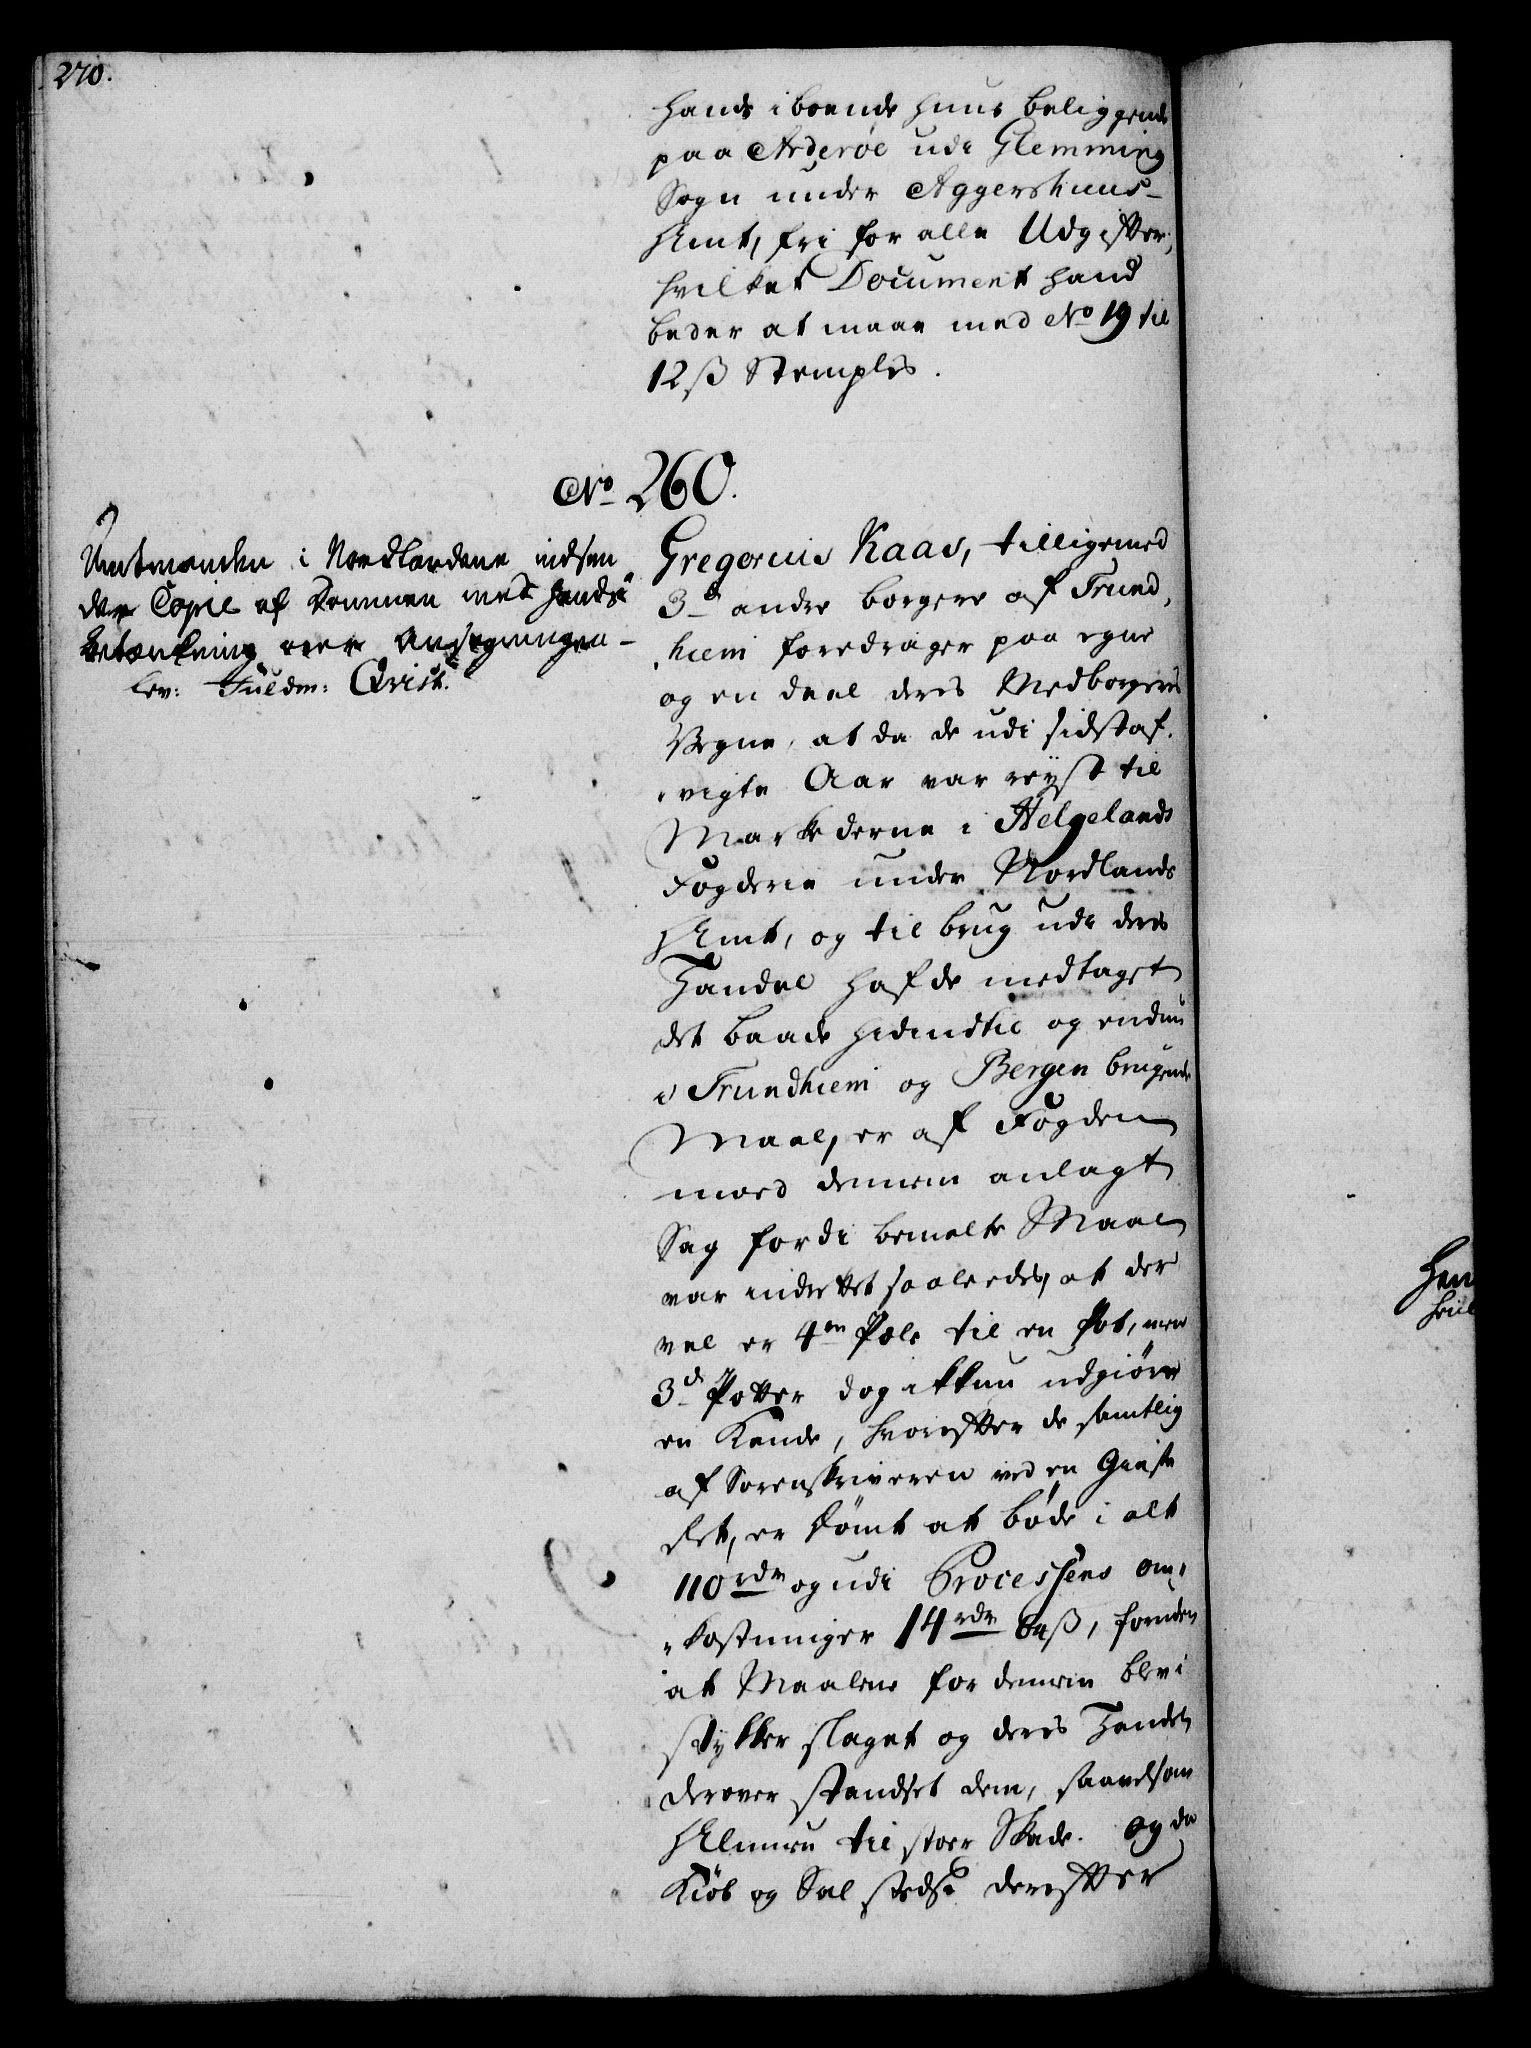 270.
hands iboende huus beliggende
paa Arderøe udi Glemming
Sogn under Aggershuus-
Amt, fri for alle Udgifter,
hvilket Document hand
beder at maae med No 19 til
12 ß Stemples.
No 260.
Amtmanden i Nordlandene indsen
der Copie af Dommen med hands
betænkning over Ansøgningen -
lev: Fuldm: Qvist.
Gregorius Kaas, tilligemed
3de andre borgere af Trund,
hiem foredrager paa egne
og en deel deres Medborgeres
Vegne, at da de udi sidstaf,
vigte Aar var reyst til
Markederne i Helgelands
Fogderie under Nordlands
Amt, og til brug udi deres
Handel hafde medtaget
det baade hidindtil og endnu
i Trundhiem og Bergen brugende
Maal, er af Fogden
moed dennem anlagt
Sag fordi bemelte Maal
var indrettet saaledes, at der
vel er 4re Pæle til en Pot, men
3de Potter dog ikkun udgiøre
en Kande, hvorefter de samtlig
af Sorenskriveren ved en Gieste
Ret, er dømt at bøde i alt
110 rdr og udi Processens om,
kostninger 14 rdr 64 ß, foruden
at Maalene for dennem blev i
stykker slaget og deres Handel
derover standset dem, saavelsom
Almuen til stoer Skade. Og da
Kiøb og Sal stedse derefter
Hen
hvil